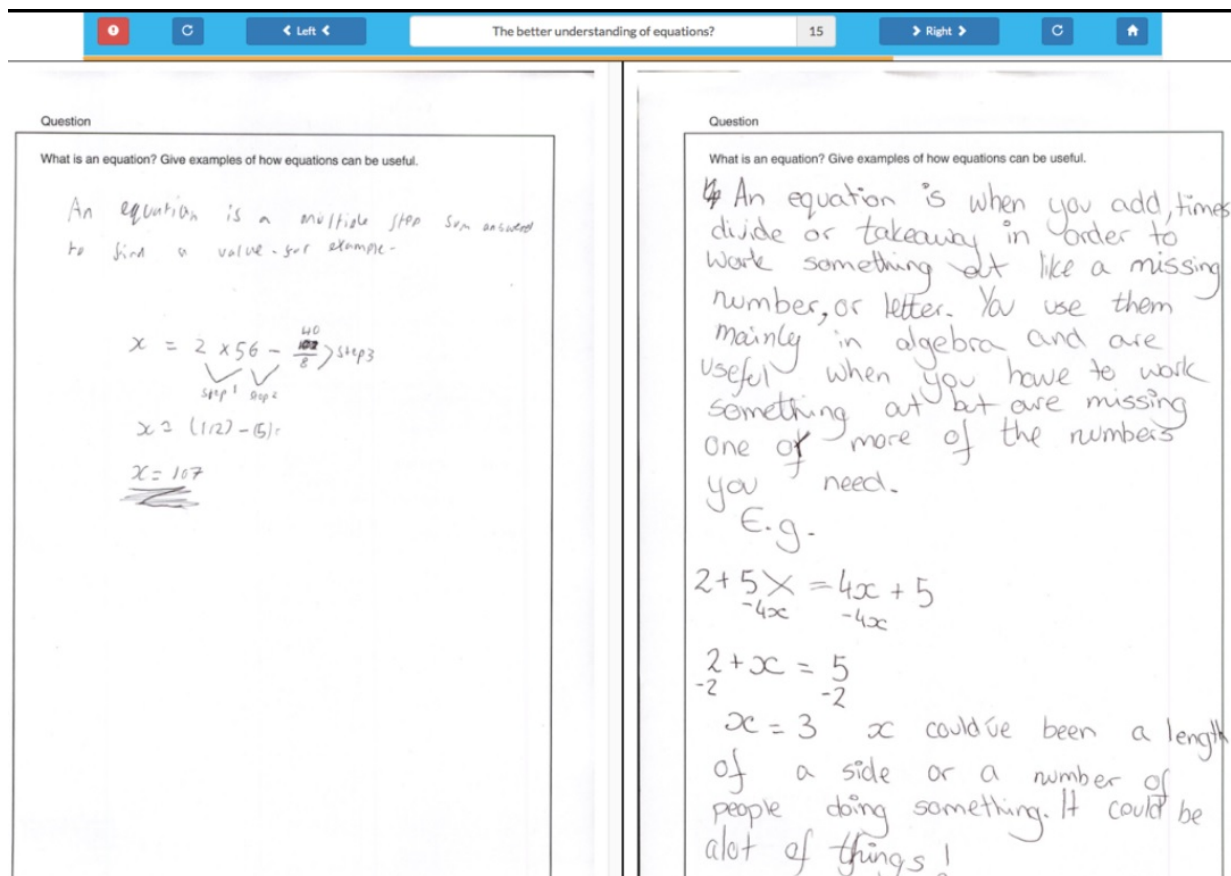 Left
The better understanding of equations?
15
Right
Question
What is an equation? Give examples of how equations can be useful.
An equation is a multiple step sum answered
to find a value. for example-
40
x = 2 x 56 - 8 > step3
step 1 step 2
x = (112) - (5)
x = 107
Question
What is an equation? Give examples of how equations can be useful.
An equation is when you add, times
divide or takeaway in order to
work something out like a missing
number, or letter. You use them
mainly in algebra and are
useful when you have to work
something out but are missing
one or more of the numbers
you need.
E.g.
2 + 5x = 4x + 5
-4x -4x
2 + x = 5
-2 -2
x = 3 x could've been a length
of a side or a number of
people doing something. It could be
alot of things!